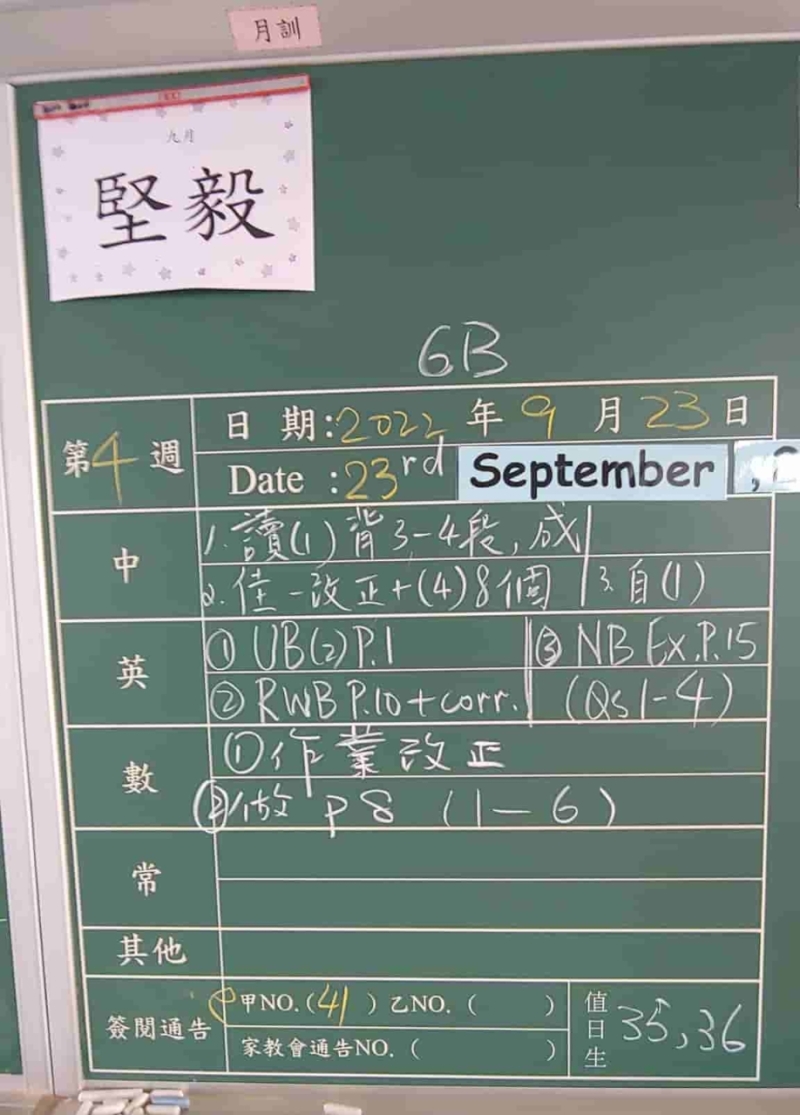 月訓
九月
堅毅
6B
第4週
日 期:2022 年 9 月 23 日
Date :23rd September
中
1.讀(1)背3-4段,成
2.佳一改正+(4)8個 3.自(1)
英
① UB(2)P.1 ③ NB Ex.P.15
② RWB P.10+corr. (Qs1-4)
數
①作業改正
②做 P8 (1-6)
常
其他
簽閱通告
甲NO.(41) 乙NO.( )
家教會通告NO.( )
值日生 35,36